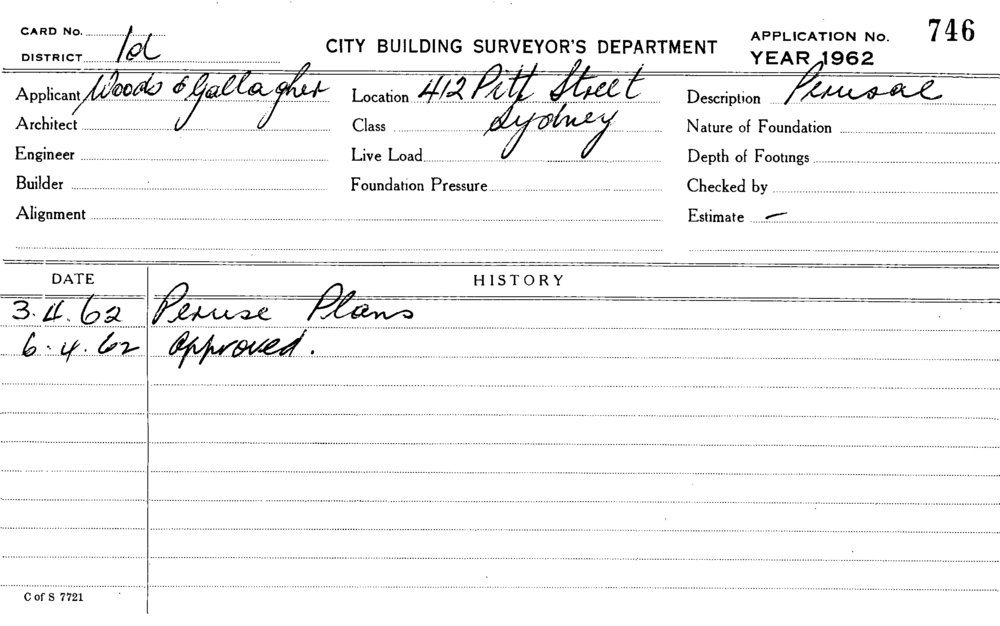 CARD No.
DISTRICT 1d
CITY BUILDING SURVEYOR'S DEPARTMENT
APPLICATION No. 746
YEAR 1962
Applicant Woods & Gallagher
Location 412 Pitt Street
Description Perusal
Architect
Class Sydney
Nature of Foundation
Engineer
Live Load
Depth of Footings
Builder
Foundation Pressure
Checked by
Alignment
Estimate —
DATE
HISTORY
3.4.62 Peruse Plans
6.4.62 approved.
C of S 7721